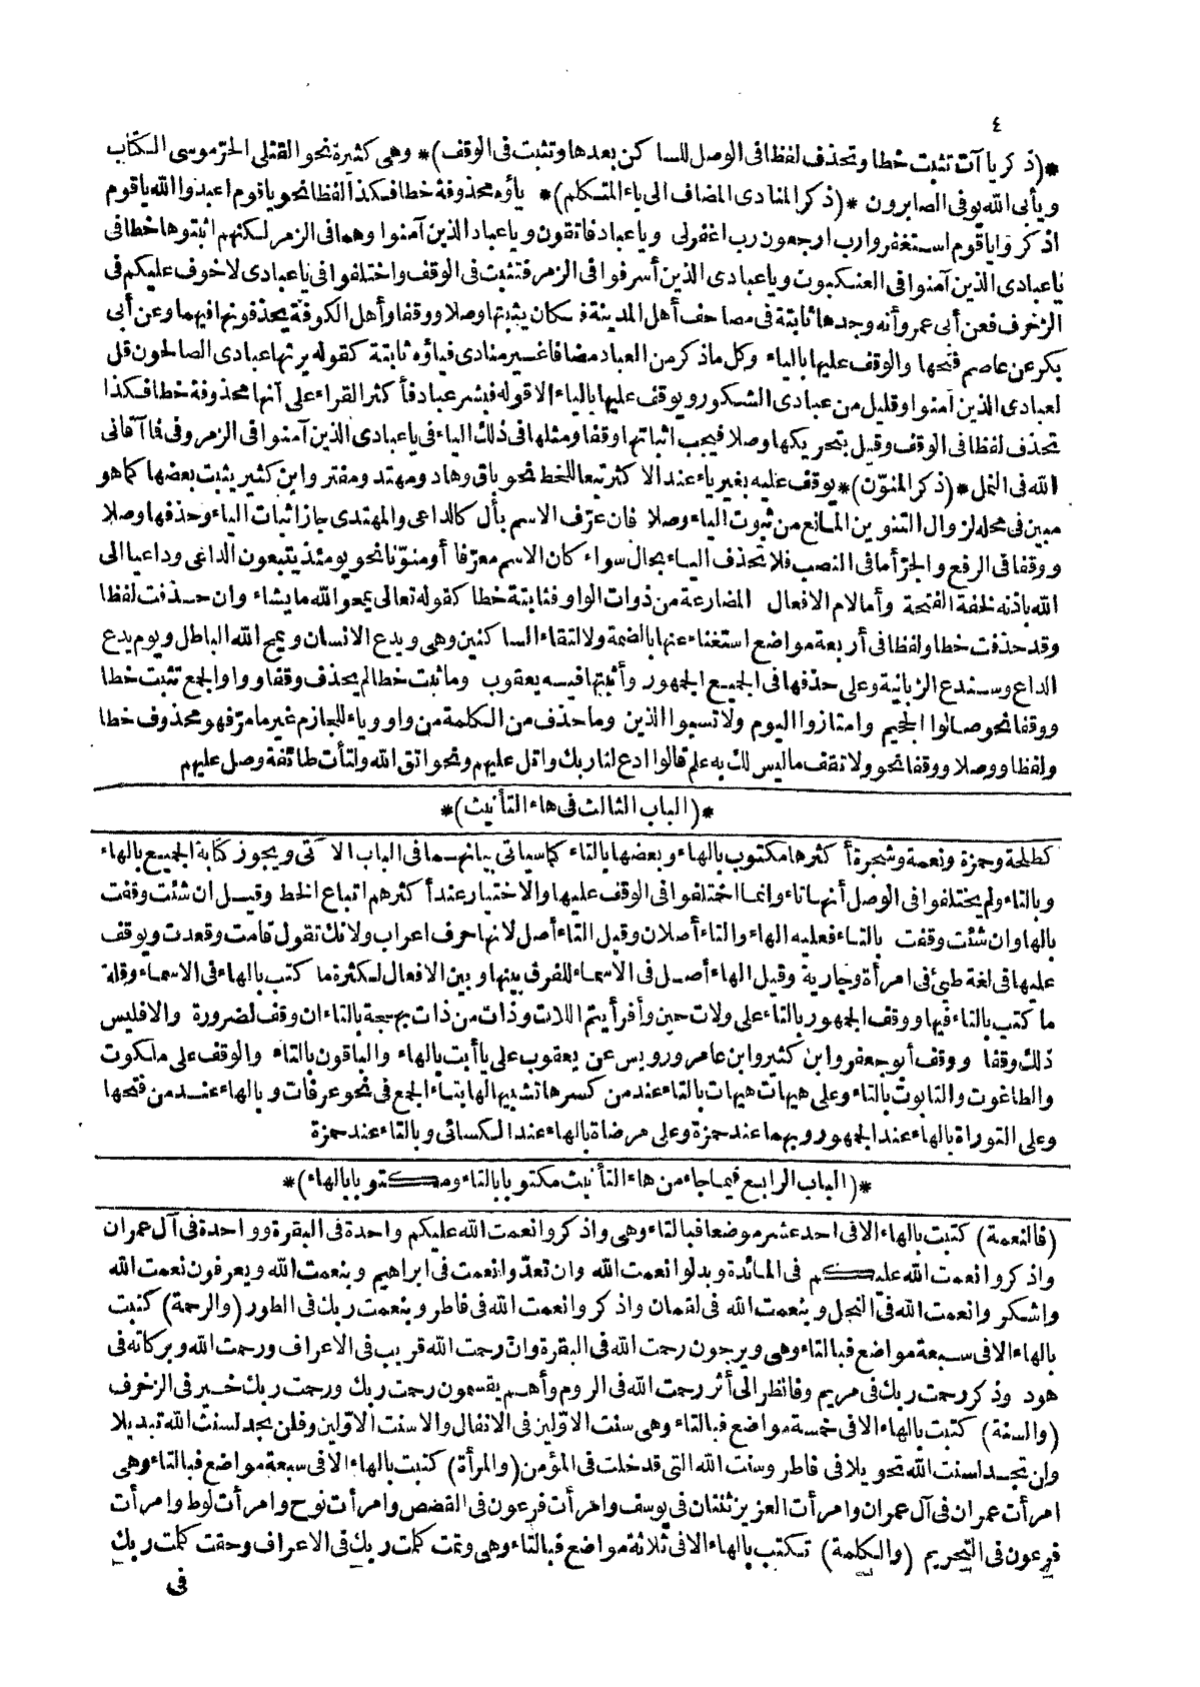 ٤
*(ذكر ياآت تثبت خطا وتحذف لفظا فى الوصل للساكن بعدها وتثبت فى الوقف)* وهى كثيرة نحو القتلى الحرّ موسى الكتاب
ويأبى الله يوفى الصابرون *(ذكر المنادى المضاف الى ياء المتكلم)* ياؤه محذوفة خطا فكذا لفظا نحو ياقوم اعبدوا الله ياقوم
اذكروا ياقوم استغفروا رب ارجعون رب اغفرلى وياعباد فاتقون وياعباد الذين آمنوا وهما فى الزمر لكنهم اثبتوها خطا فى
ياعبادى الذين آمنوا فى العنكبوت وياعبادى الذين أسرفوا فى الزمر فتثبت فى الوقف واختلفوا فى ياعبادى لاخوف عليكم فى
الزخرف فعن أبى عمرو أنه وجدها ثابتة فى مصاحف أهل المدينة فكان يثبتها وصلا ووقفا وأهل الكوفة يحذفونها فيهما وعن أبى
بكر عن عاصم فتحها والوقف عليها بالياء وكل ماذكر من العباد مضافا غير منادى فياؤه ثابتة كقوله يرثها عبادى الصالحون قل
لعبادى الذين آمنوا وقليل من عبادى الشكور ويوقف عليها بالياء الاقوله فبشر عباد فأكثر القراء على أنها محذوفة خطا فكذا
تحذف لفظا فى الوقف وقيل بتحريكها وصلا فيجب اثباتها وقفا ومثلها فى ذلك الياء فى ياعبادى الذين آمنوا فى الزمر وفى فما آتانى
الله فى النمل *(ذكر المنوّن)* يوقف عليه بغيرياء عند الاكثر تبعا للخط نحو باق وهاد ومهتد ومفتر وابن كثير يثبت بعضها كماهو
مبين فى محله لزوال التنوين المانع من ثبوت الياء وصلا فان عرّف الاسم بأل كالداعى والمهتدى جاز اثبات الياء وحذفها وصلا
ووقفا فى الرفع والجرّ أما فى النصب فلاتحذف الياء بحال سواء كان الاسم معرّفا أومنوّنا نحو يومئذ يتبعون الداعى وداعيا الى
الله باذنه لخفة الفتحة وأما لام الافعال المضارعة من ذوات الواو فثابتة خطا كقوله تعالى يمحو الله مايشاء وان حذفت لفظا
وقد حذفت خطا ولفظا فى أربعة مواضع استغناء عنها بالضمة ولالتقاء الساكنين وهى ويدع الانسان ويمح الله الباطل ويوم يدع
الداع وسندع الزبانية وعلى حذفها فى الجميع الجمهور وأثبتها فيه يعقوب وماثبت خطا لم يحذف وقفا وواو الجمع تثبت خطا
ووقفا نحو صالوا الجحيم وامتازوا اليوم ولاتسبوا الذين وماحذف من الكلمة من واو وياء للجازم غير مامرّ فهو محذوف خطا
ولفظا ووصلا ووقفا نحو ولاتقف ماليس لك به علم قالوا ادع لنا ربك واتل عليهم ونحو اتق الله ولتأت طائفة وصل عليهم
*(الباب الثالث فى هاء التأنيث)*
كطلحة وحمزة ونعمة وشجرة أكثرها مكتوب بالهاء وبعضها بالتاء كماسياتى بيانهما فى الباب الآتى ويجوز كتابة الجميع بالهاء
وبالتاء ولم يختلفوا فى الوصل أنها تاء وانما اختلفوا فى الوقف عليها والاختيار عند أكثرهم اتباع الخط وقيل ان شئت وقفت
بالهاء وان شئت وقفت بالتاء فعليه الهاء والتاء أصلان وقيل التاء أصل لانها حرف اعراب ولانك تقول قامت وقعدت ويوقف
عليها فى لغة طيئ فى امرأة وجارية وقيل الهاء أصل فى الاسماء للفرق بينها وبين الافعال لكثرة ما كتب بالهاء فى الاسماء وقلة
ما كتب بالتاء فيها ووقف الجمهور بالتاء على ولات حين وأفرأيتم اللات وذات من ذات بهجة بالتاء ان وقف لضرورة والافليس
ذلك وقفا ووقف أبوجعفر وابن كثير وابن عامر ورويس عن يعقوب على ياأبت بالهاء والباقون بالتاء والوقف على ملكوت
والطاغوت والتابوت بالتاء وعلى هيهات هيهات بالتاء عند من كسرها تشبيها لها بتاء الجمع فى نحو عرفات وبالهاء عند من فتحها
وعلى التوراة بالهاء عند الجمهور وبهما عند حمزة وعلى مرضاة بالهاء عند الكسائى وبالتاء عند حمزة
*(الباب الرابع فيماجاء من هاء التأنيث مكتوبا بالتاء ومكتوبا بالهاء)*
(فالنعمة) كتبت بالهاء الافى احد عشر موضعا فبالتاء وهى واذكروا نعمت الله عليكم واحدة فى البقرة وواحدة فى آل عمران
واذكروا نعمت الله عليكم فى المائدة وبدلوا نعمت الله وان تعدّوا نعمت فى ابراهيم وبنعمت الله ويعرفون نعمت الله
واشكروا نعمت الله فى النحل وبنعمت الله فى لقمان واذكروا نعمت الله فى فاطر وبنعمت ربك فى الطور (والرحمة) كتبت
بالهاء الافى سبعة مواضع فبالتاء وهى ويرجون رحمت الله فى البقرة وان رحمت الله قريب فى الاعراف ورحمت الله وبركاته فى
هود وذكر رحمت ربك فى مريم وفانظر الى أثر رحمت الله فى الروم وأهم يقسمون رحمت ربك ورحمت ربك خير فى الزخرف
(والسنة) كتبت بالهاء الافى خمسة مواضع فبالتاء وهى سنت الاوّلين فى الانفال والاسنت الاوّلين وفلن تجد لسنت الله تبديلا
ولن تجد لسنت الله تحويلا فى فاطر وسنت الله التى قد خلت فى المؤمن (والمرأة) كتبت بالهاء الافى سبعة مواضع فبالتاء وهى
امرأت عمران فى آل عمران وامرأت العزيز ثنتان فى يوسف وامرأت فرعون فى القصص وامرأت نوح وامرأت لوط وامرأت
فرعون فى التحريم (والكلمة) تكتب بالهاء الافى ثلاثة مواضع فبالتاء وهى وتمت كلمت ربك فى الاعراف وحقت كلمت ربك
فى